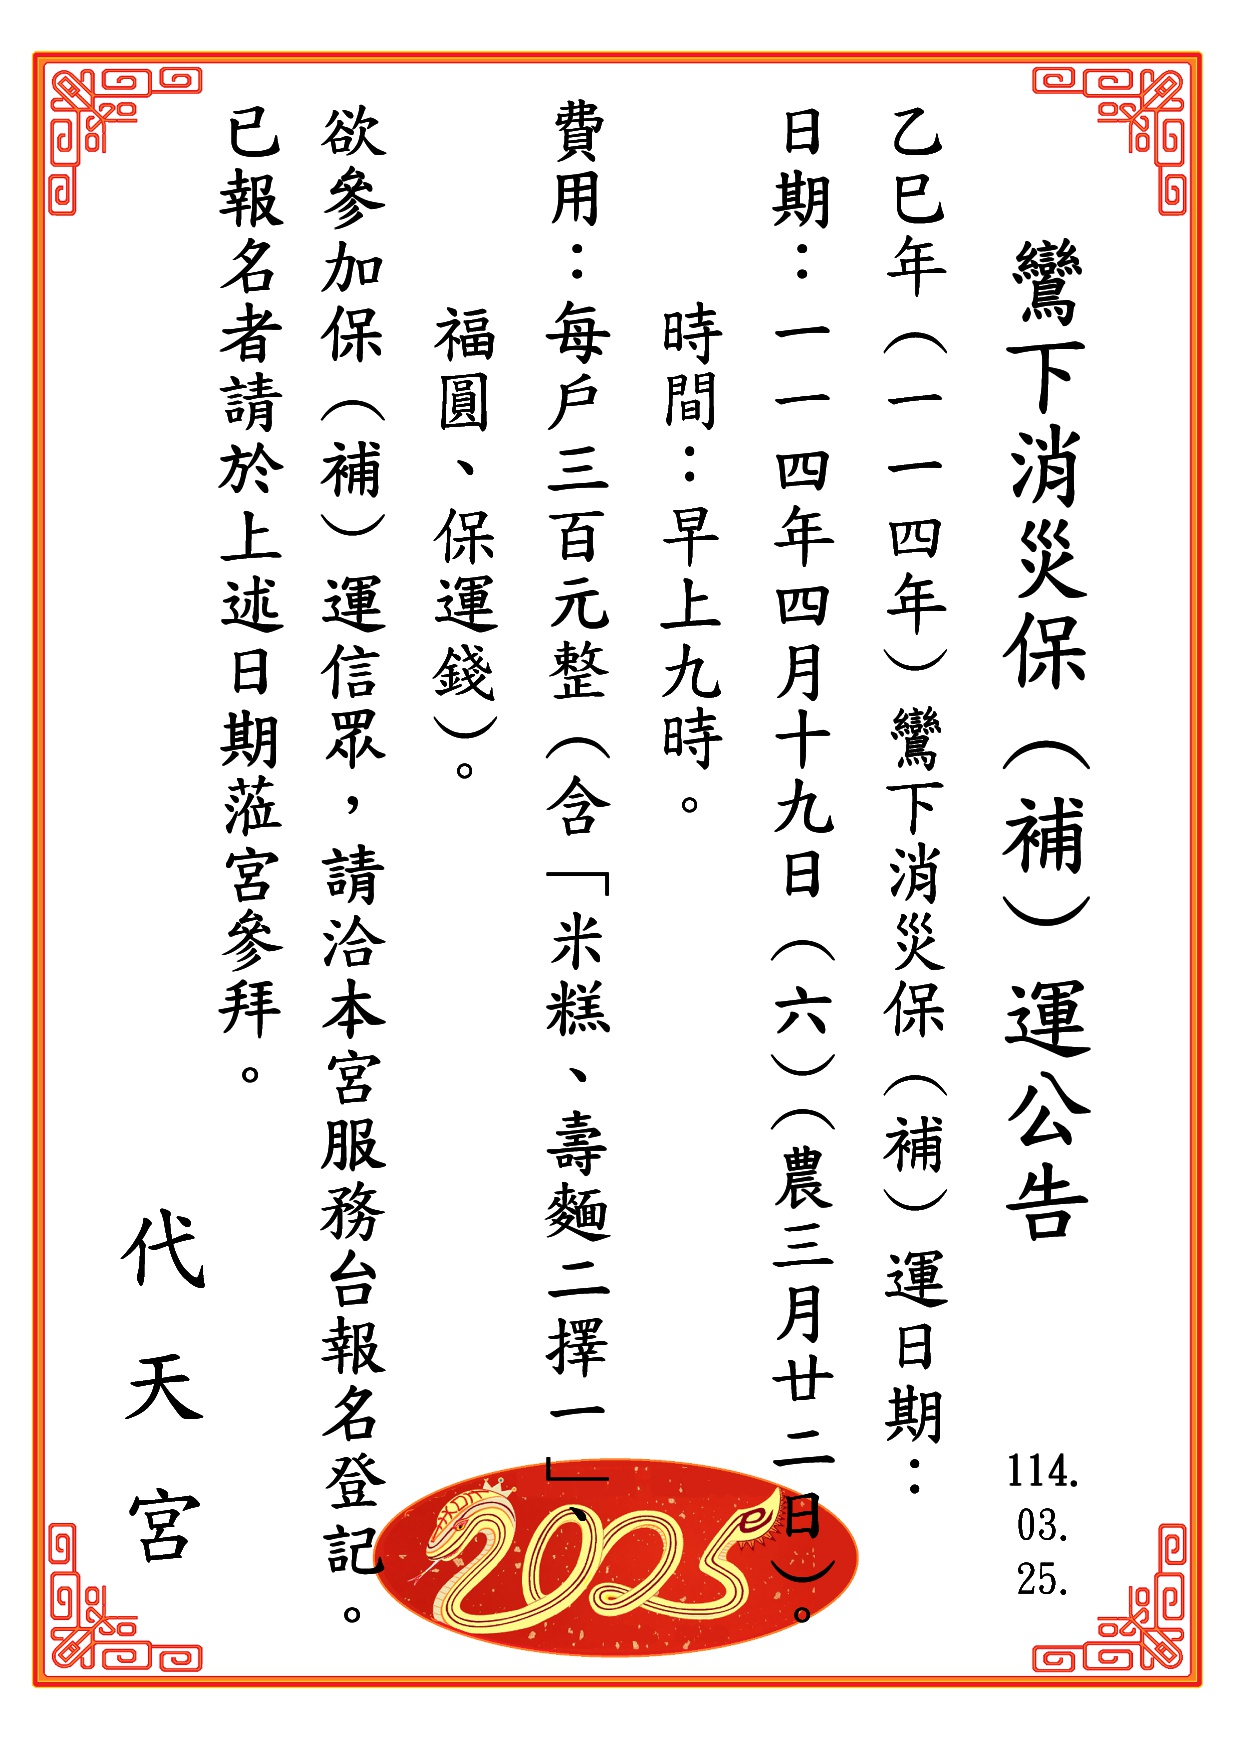 鸞下消災保（補）運公告
114.
03.
25.
乙巳年（一一四年）鸞下消災保（補）運日期：
日期：一一四年四月十九日（六）（農三月廿二日）。
時間：早上九時。
費用：每戶三百元整（含「米糕、壽麵二擇一」、
福圓、保運錢）。
欲參加保（補）運信眾，請洽本宮服務台報名登記。
已報名者請於上述日期蒞宮參拜。
代天宮
2025